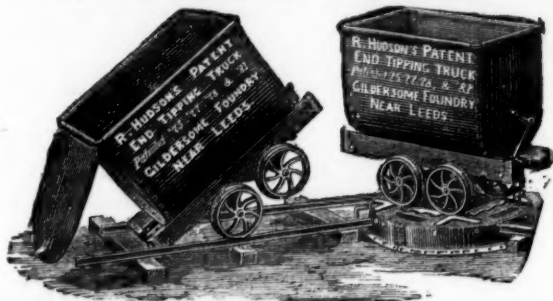 R. HUDSON'S PATENT
END TIPPING TRUCK
Patented '75 '77 '78 & '81
GILDERSOME FOUNDRY
NEAR LEEDS.
R. HUDSON'S PATENT
END TIPPING TRUCK
Patented '75. 77. 78. & '81
GILDERSOME FOUNDRY
NEAR LEEDS.